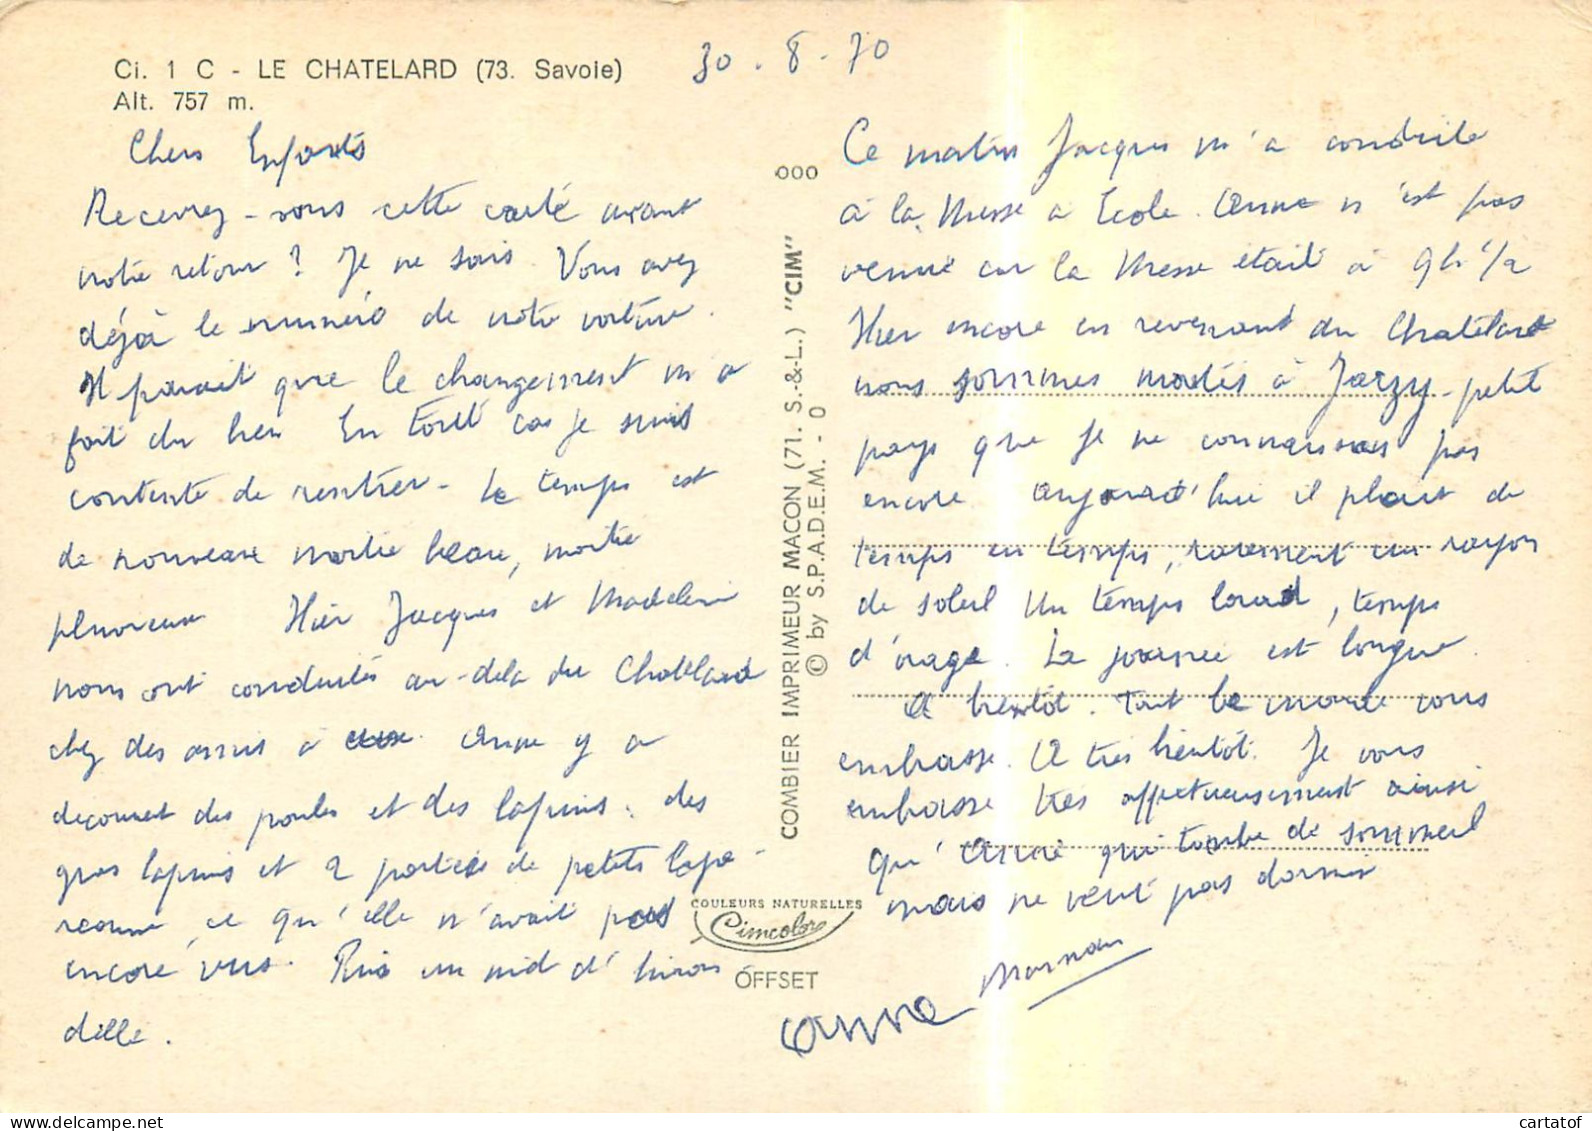 Ci. 1 C - LE CHATELARD (73. Savoie)
Alt. 757 m.
30 . 8 . 70
Chers Enfants
Recevrez-vous cette carte avant
notre retour ? Je ne sais. Vous avez
déjà le numéro de notre voiture.
Il parait que le changement m'a
fait du bien En tout cas je suis
contente de rentrer - Le temps est
de nouveau moitié beau, moitié
pluvieux Hier Jacques et Madeleine
nous ont conduites au-delà du Chatelard
chez des amis à eux. Anne y a
decouvert des poules et des lapins : des
gros lapins et 2 portées de petits lape-
reaux, ce qu'elle n'avait pas
encore vus. Puis un nid d'hiron
delle.
COMBIER IMPRIMEUR MACON (71. S.-&-L.) "CIM"
© by S.P.A.D.E.M. - 0
COULEURS NATURELLES
Cimcolor
OFFSET
Ce matin Jacques m'a conduite
à la Messe à Ecole. Anne n'est pas
venue car la Messe était à 9h 1/2
Hier encore en revenant du Chatelard
nous sommes montés à Jarzy - petit
pays que je ne connaissais pas
encore Aujourd'hui il pleut de
temps en temps, rarement un rayon
de soleil Un temps lourd, temps
d'orage. La journée est longue.
A bientôt. Tout le monde vous
embrasse. A très bientôt. Je vous
embrasse très affectueusement ainsi
qu'Anne qui tombe de sommeil
mais ne veut pas dormir
Maman
Anne
cartatof